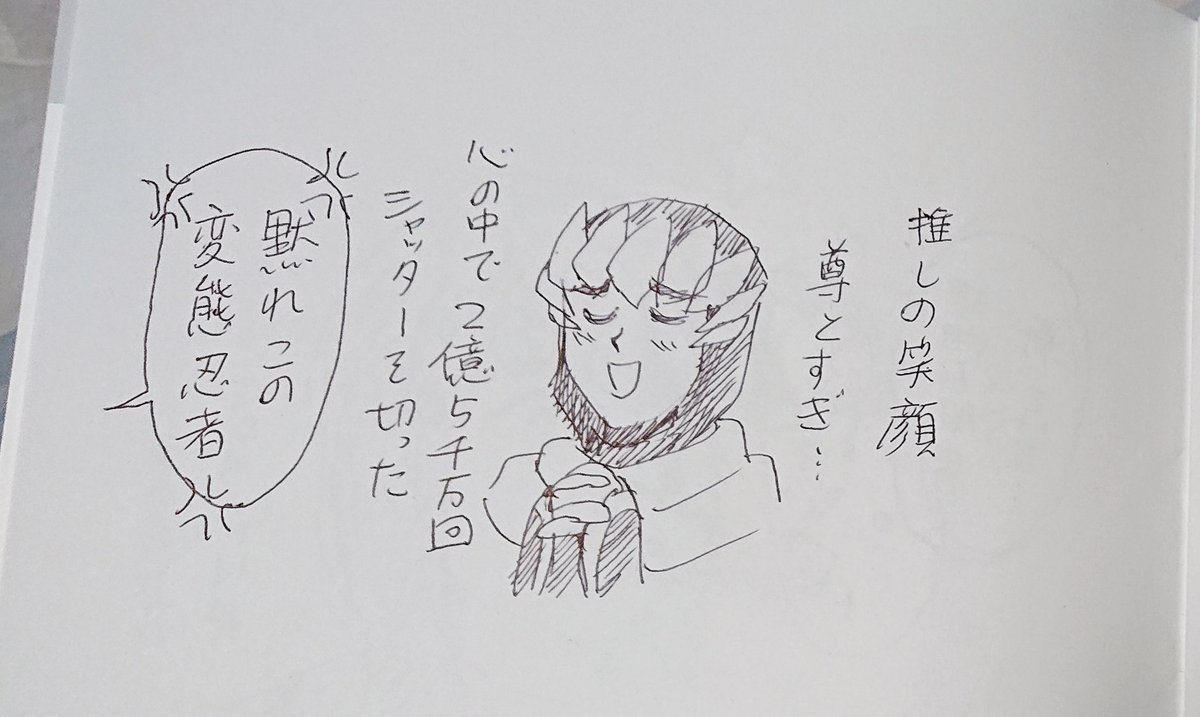 推しの笑顔
尊とすぎ…
心の中で2億5千万回
シャッターを切った
黙れこの
変態忍者